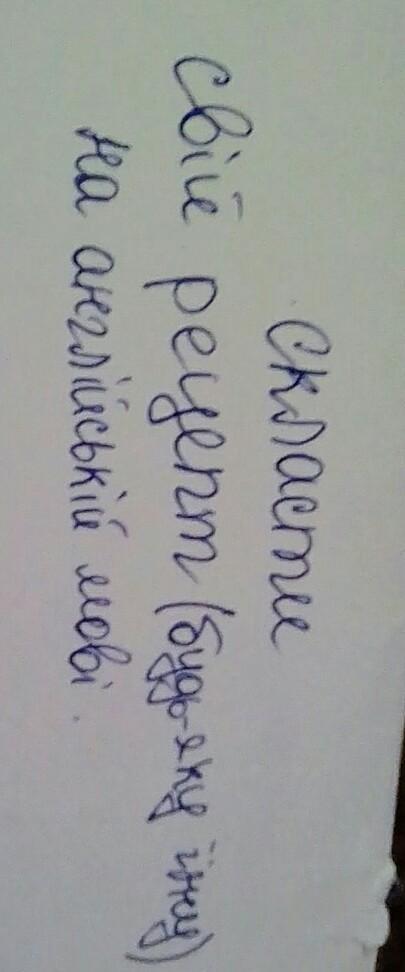 Скласти
свій рецепт (будь-яку їжу)
на англійській мові.